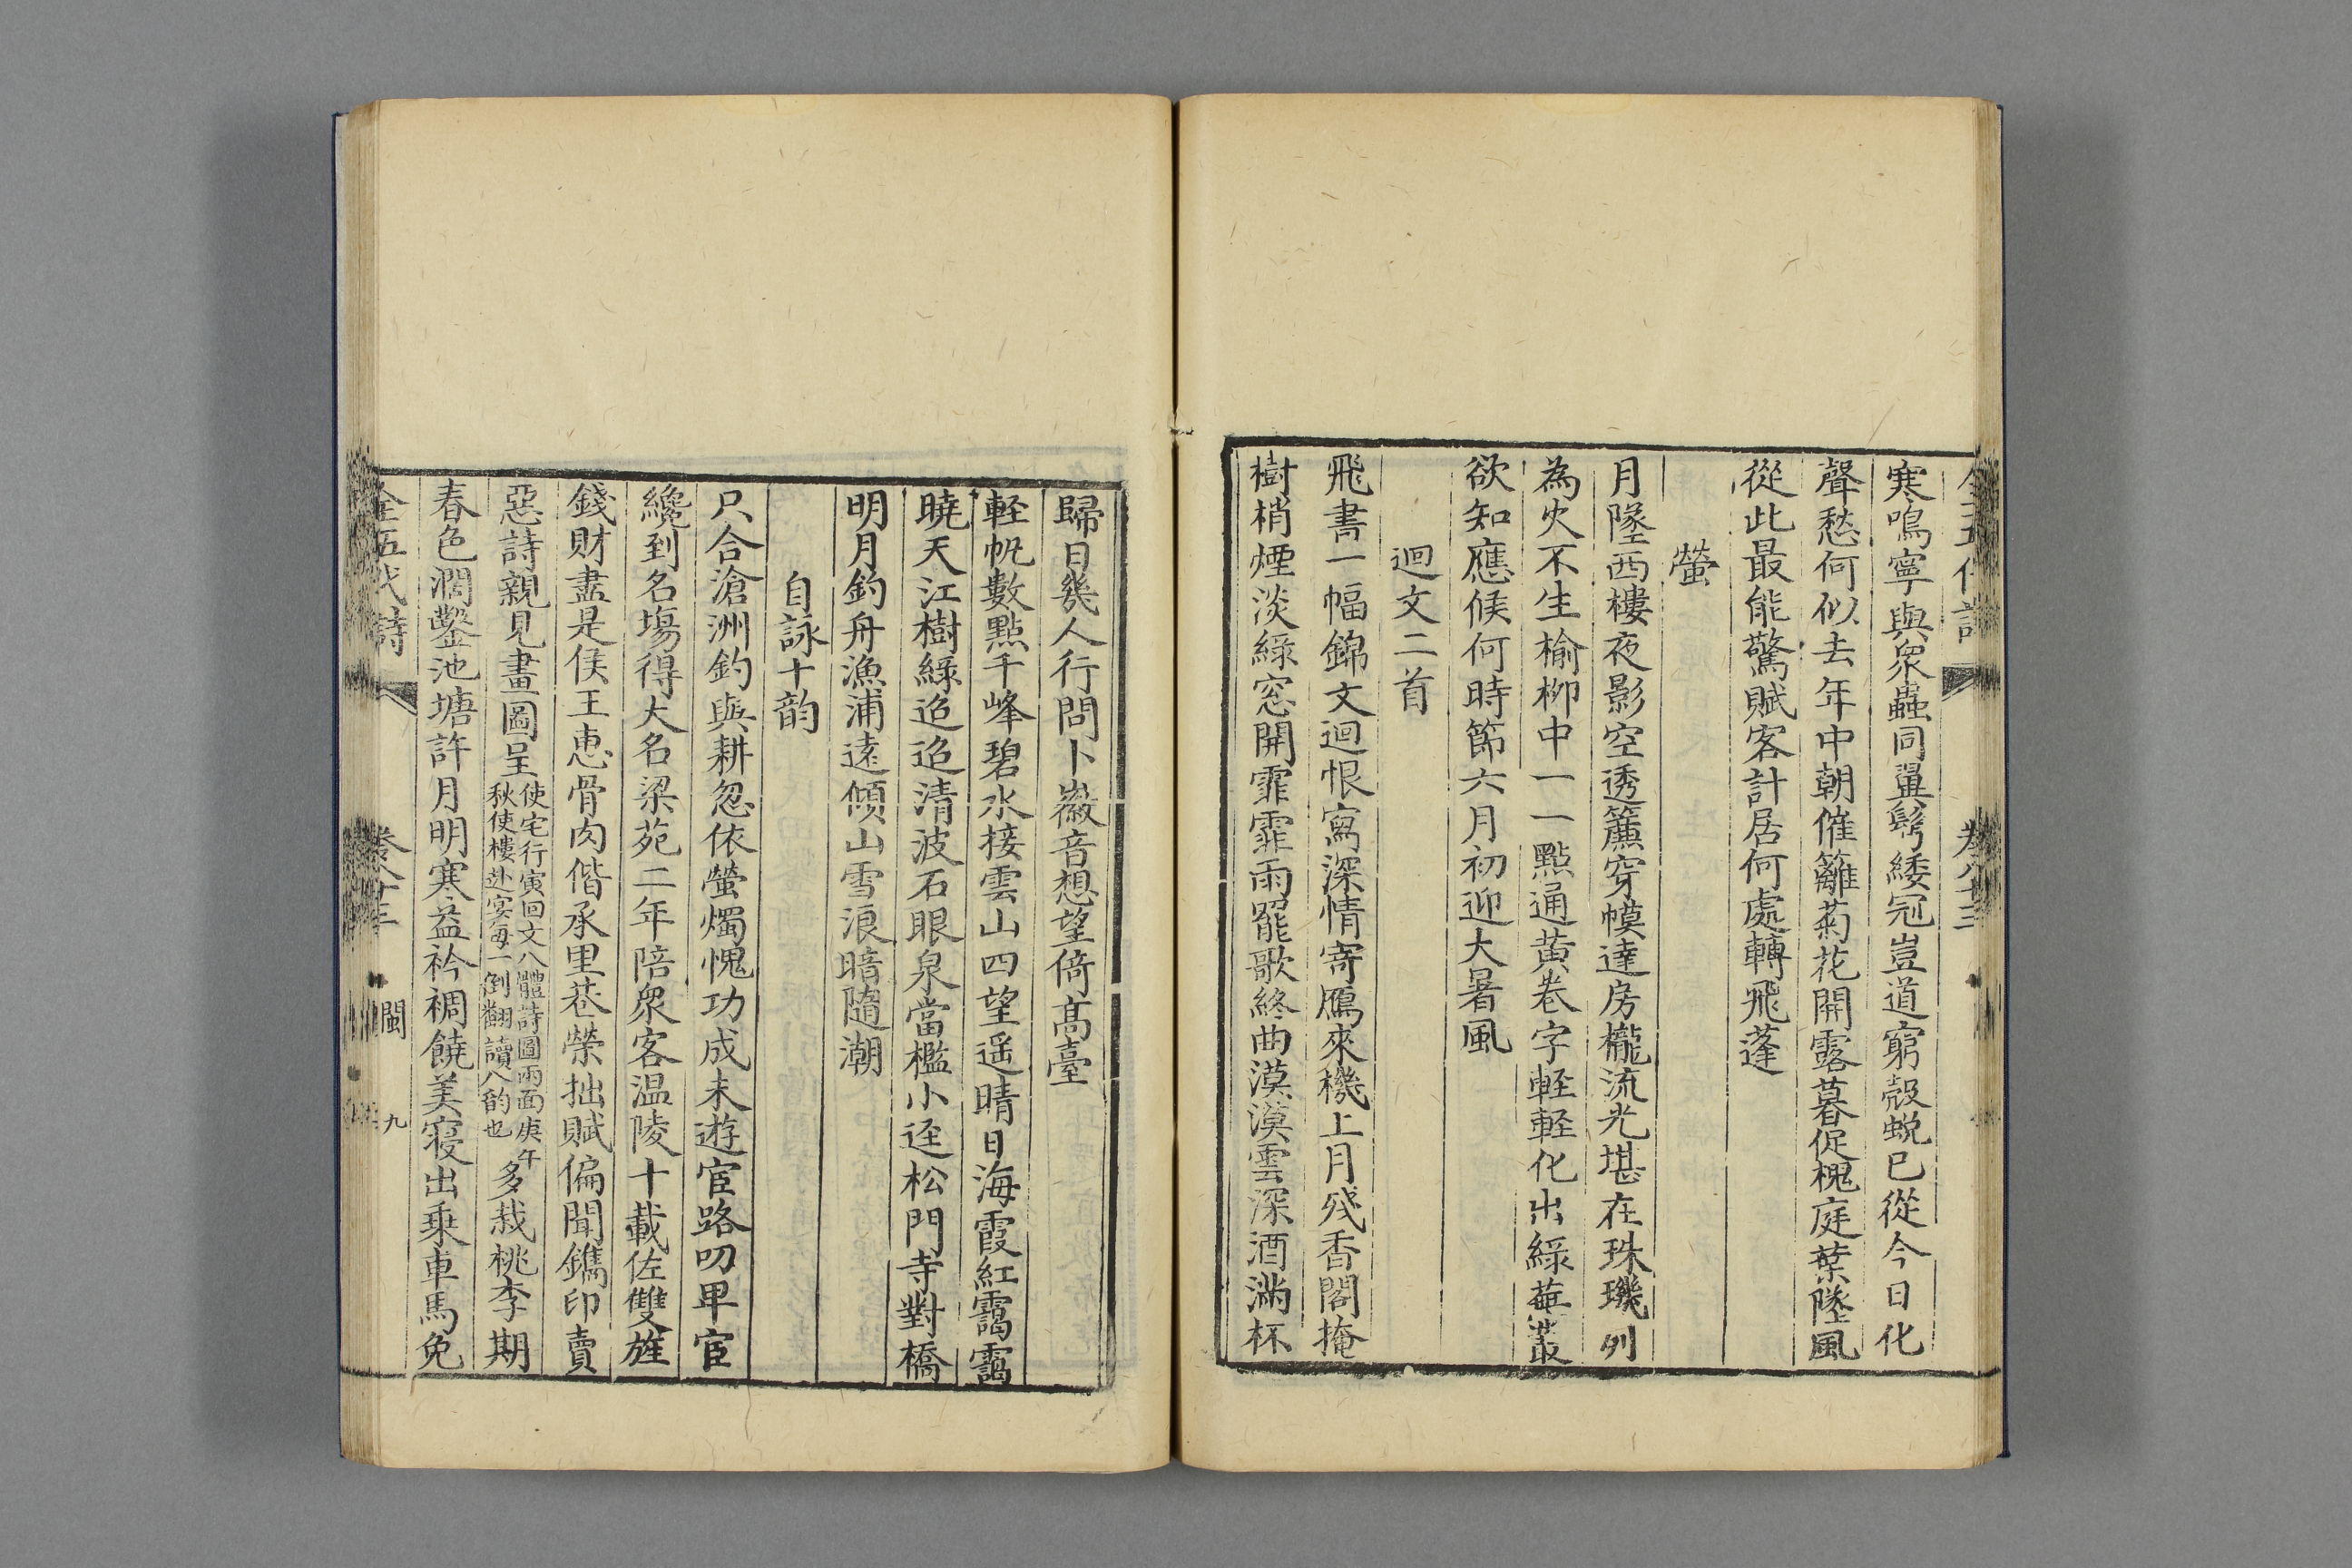 寒鳴寧與衆蟲同翼鬢緌冠豈道窮殻蛻已從今日化
聲愁何似去年中朝催籬菊花開露暮促槐庭葉墜風
從此最能驚賦客計居何處轉飛蓬
螢
月墜西樓夜影空透簾穿幙達房櫳流光堪在珠璣列
為火不生榆柳中一一點通黃卷字輕輕化出綠蕪叢
欲知應候何時節六月初迎大暑風
迴文二首
飛書一幅錦文迴恨寫深情寄鴈來機上月殘香閣掩
樹梢煙淡綠窓開霏霏雨罷歌終曲漠漠雲深酒滿杯
歸日幾人行問卜徽音想望倚高臺
輕帆數點千峰碧水接雲山四望遥晴日海霞紅靄靄
曉天江樹綠迢迢清波石眼泉當檻小逕松門寺對橋
明月釣舟漁浦遠傾山雪浪暗隨潮
自詠十韵
只合滄洲釣與耕忽依螢燭愧功成未遊宦路叨卑宦
纔到名塲得大名梁苑二年陪衆客温陵十載佐雙旌
錢財盡是侯王惠骨肉偕承里巷榮拙賦偏聞鐫印賣
惡詩親見畫圖呈使宅行寅回文八體詩圖兩面庚午秋使樓赴宴每一倒翻讀八韵也多栽桃李期
春色濶鑿池塘許月明寒益衿裯饒美寢出乗車馬免
全五代詩 卷八十三 閩 九